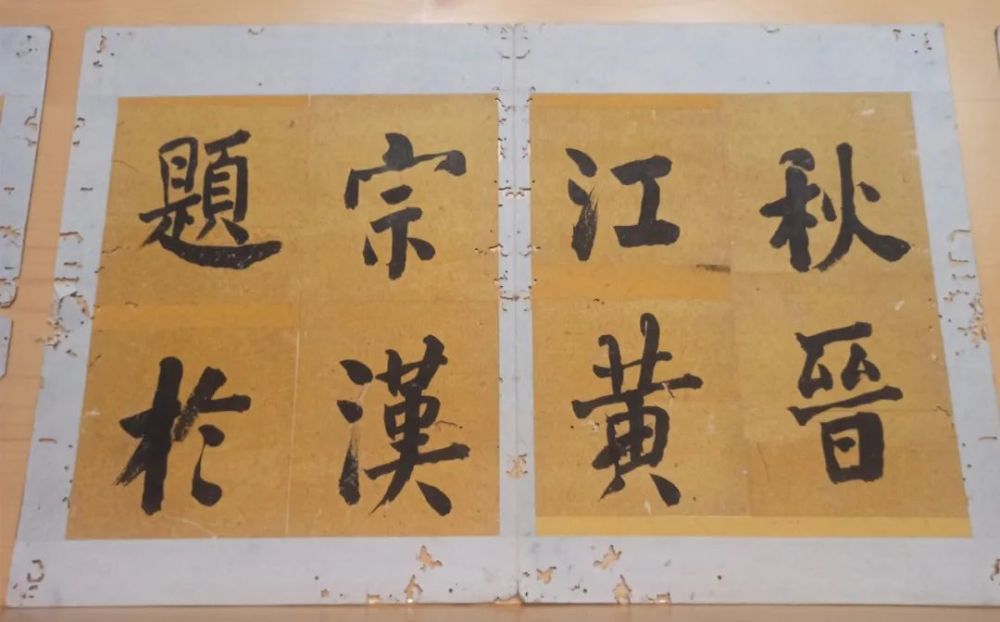 秋晉
江黃
宗漢
題於